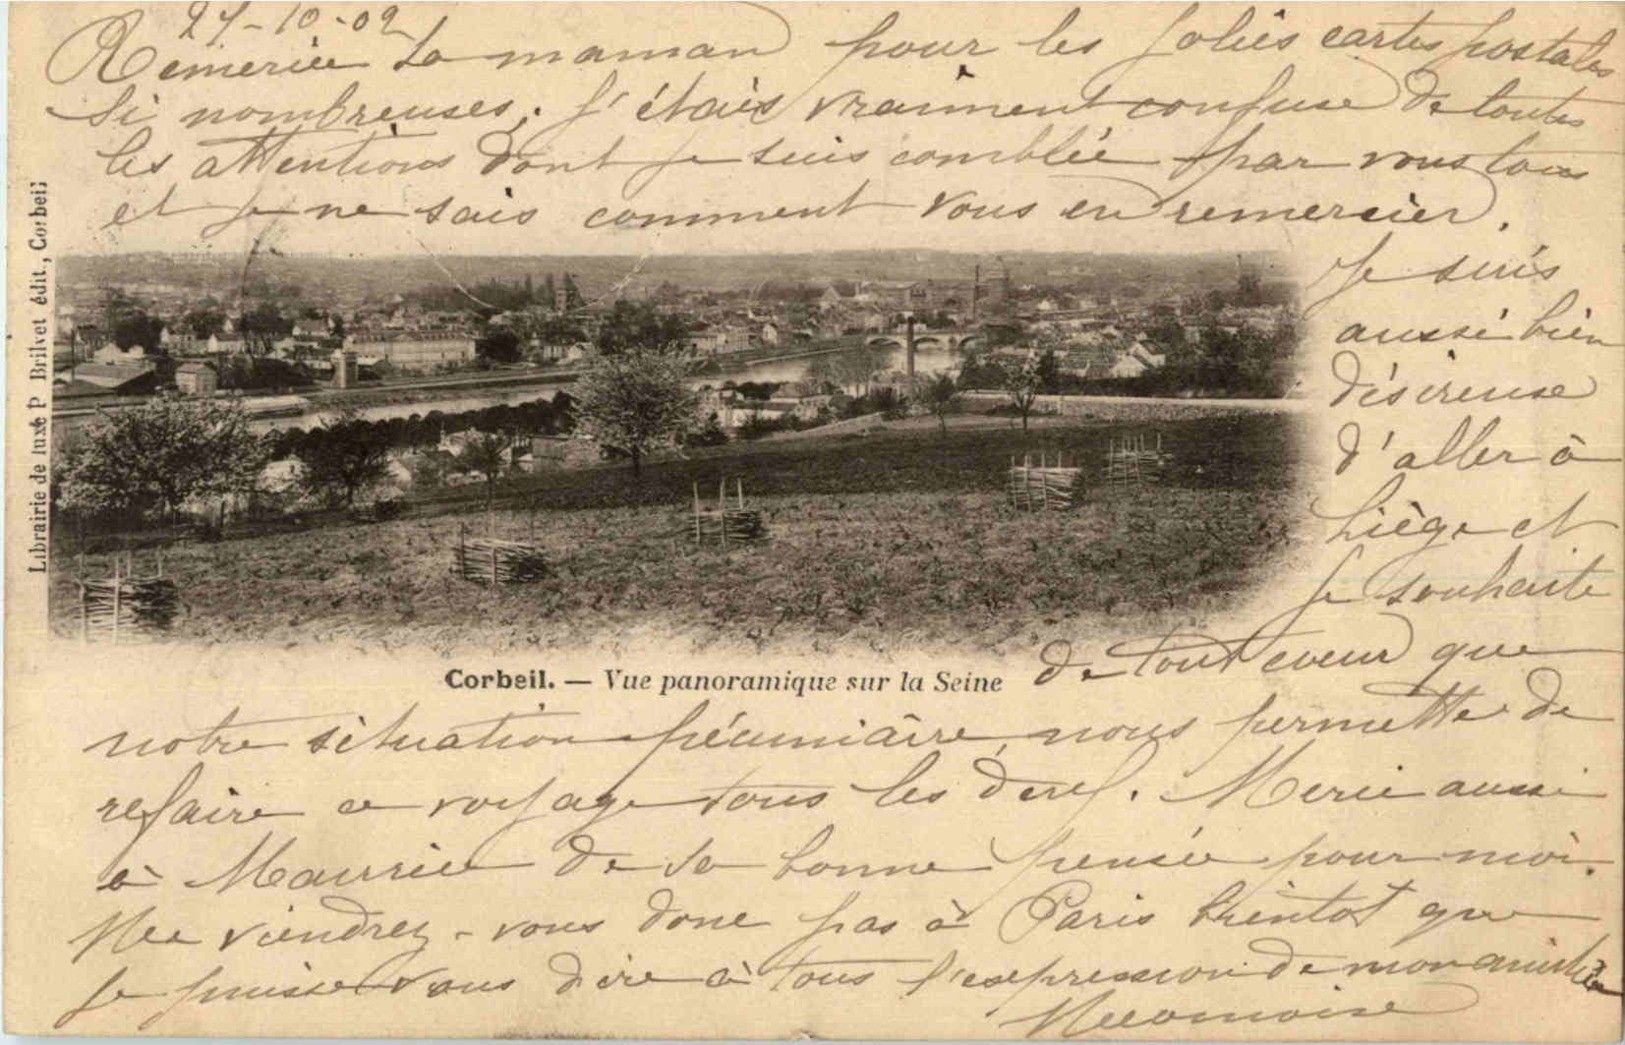 27-10-02
Remercie ta maman pour les jolies cartes postales
si nombreuses. J'étais vraiment confuse de toutes
les attentions dont je suis comblée par vous tous
et je ne sais comment vous en remercier.
Je suis
aussi bien
désireuse
d'aller à
Liège et
je souhaite
de tout coeur que
notre situation pécuniaire nous permette de
refaire ce voyage tous les deux. Merci aussi
à Maurice de sa bonne pensée pour moi.
Ne viendrez-vous donc pas à Paris bientot que
je puisse vous dire à tous l'expression de mon amitié
Librairie de luxe P Brilvet édit., Corbeil
Corbeil. — Vue panoramique sur la Seine